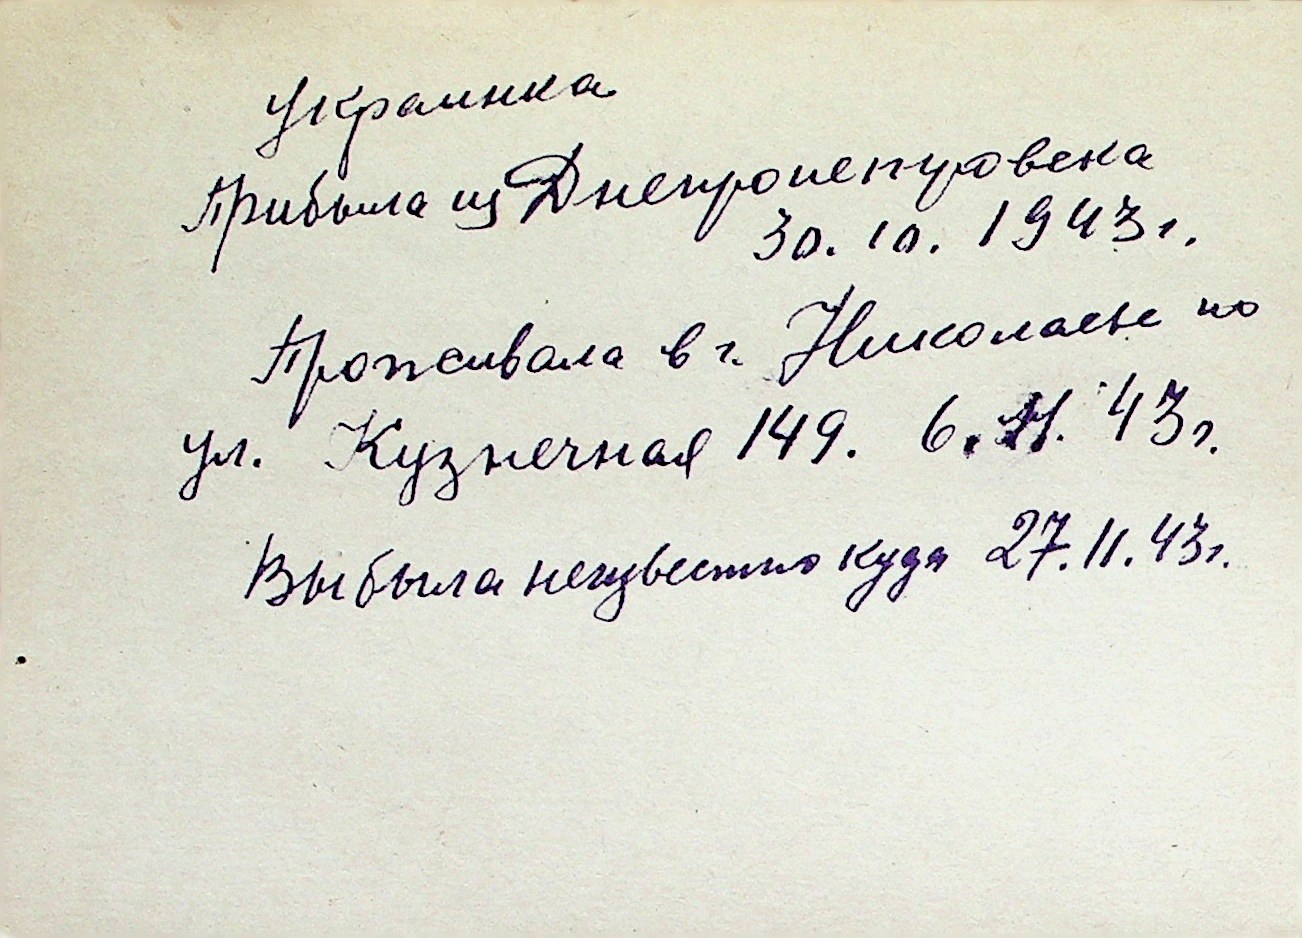 Украинка
Прибыла из Днепропетровска
30.10.1943г.
Проживала в г. Николаеве по
ул. Кузнечная 149. 6.11.43г.
Выбыла неизвестно куда 27.11.43г.